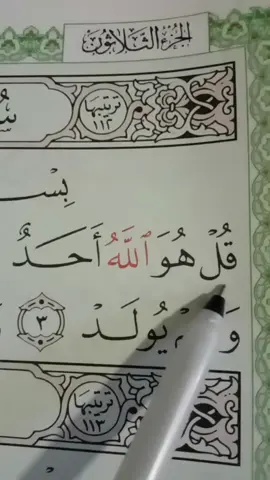 الجزء الثلاثون
ترتيبها
بِسْ
قُلْ هُوَ ٱللَّهُ أَحَدٌ
يُولَدْ ٣
ترتيبها ١١٣